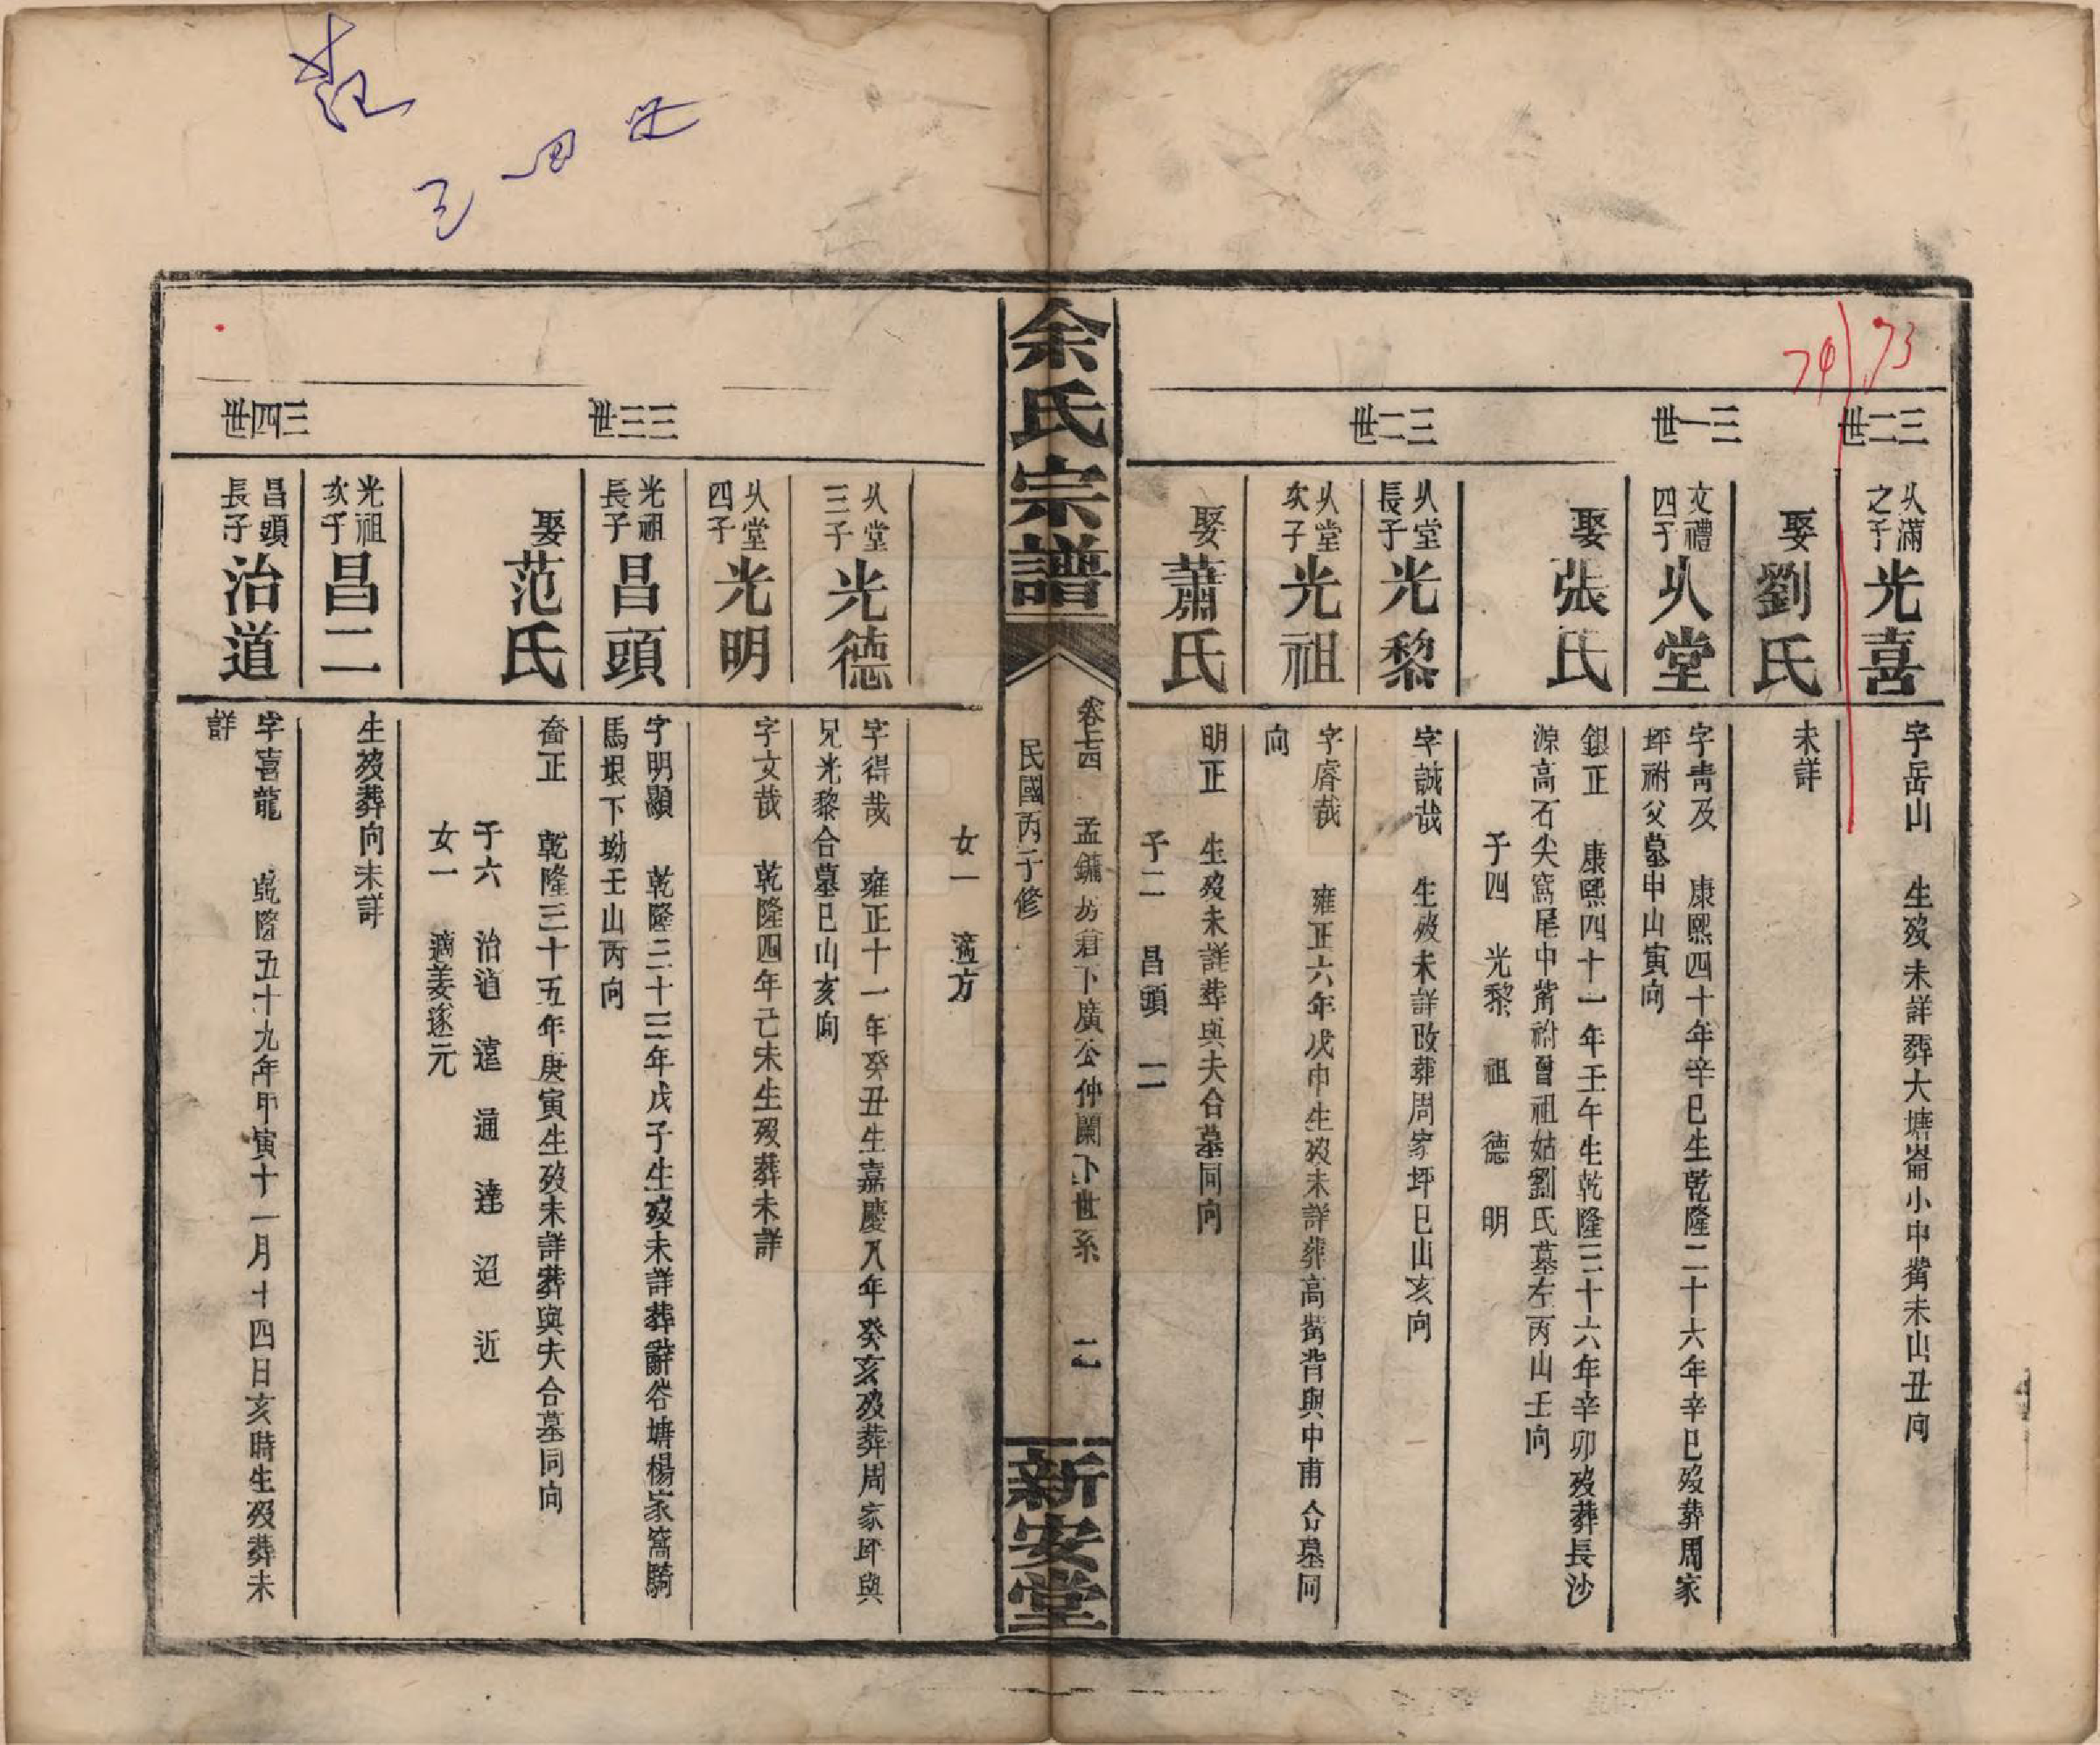 三二世
從滿之子光喜
字岳山　生歿未詳葬大塘崙小中嘴未山丑向
娶劉氏
未詳
三一世
文禮四子從堂
字靑及　康熙四十年辛巳生乾隆二十六年辛巳歿葬周家
坪祔父墓申山寅向
娶張氏
銀正　康熙四十一年壬午生乾隆三十六年辛卯歿葬長沙
源高石尖窩尾中嘴祔曾祖姑劉氏墓左丙山壬向
子四　光黎　祖　德　明
三二世
從堂長子光黎
字誠哉　生歿未詳改葬周家坪巳山亥向
從堂次子光祖
字睿哉　雍正六年戊申生歿未詳葬高嘴背與中甫合墓同
向
娶蕭氏
明正　生歿未詳葬與夫合墓同向
子二　昌頭　二
余氏宗譜
民國丙子修
新安堂
女一　適方
從堂三子光德
字得哉　雍正十一年癸丑生嘉慶八年癸亥歿葬周家坪與
兄光黎合墓巳山亥向
從堂四子光明
字文哉　乾隆四年己未生歿葬未詳
三三世
光祖長子昌頭
字明顯　乾隆三十三年戊子生歿未詳葬辭谷塘楊家窩騎
馬垠下坳壬山丙向
娶范氏
喬正　乾隆三十五年庚寅生歿未詳葬與夫合墓同向
子六　治道　遠　通　達　迢　近
女一　適姜逐元
光祖次子昌二
生歿葬向未詳
三四世
昌頭長子治道
字喜龍　乾隆五十九年甲寅十一月十四日亥時生歿葬未
詳
74
73